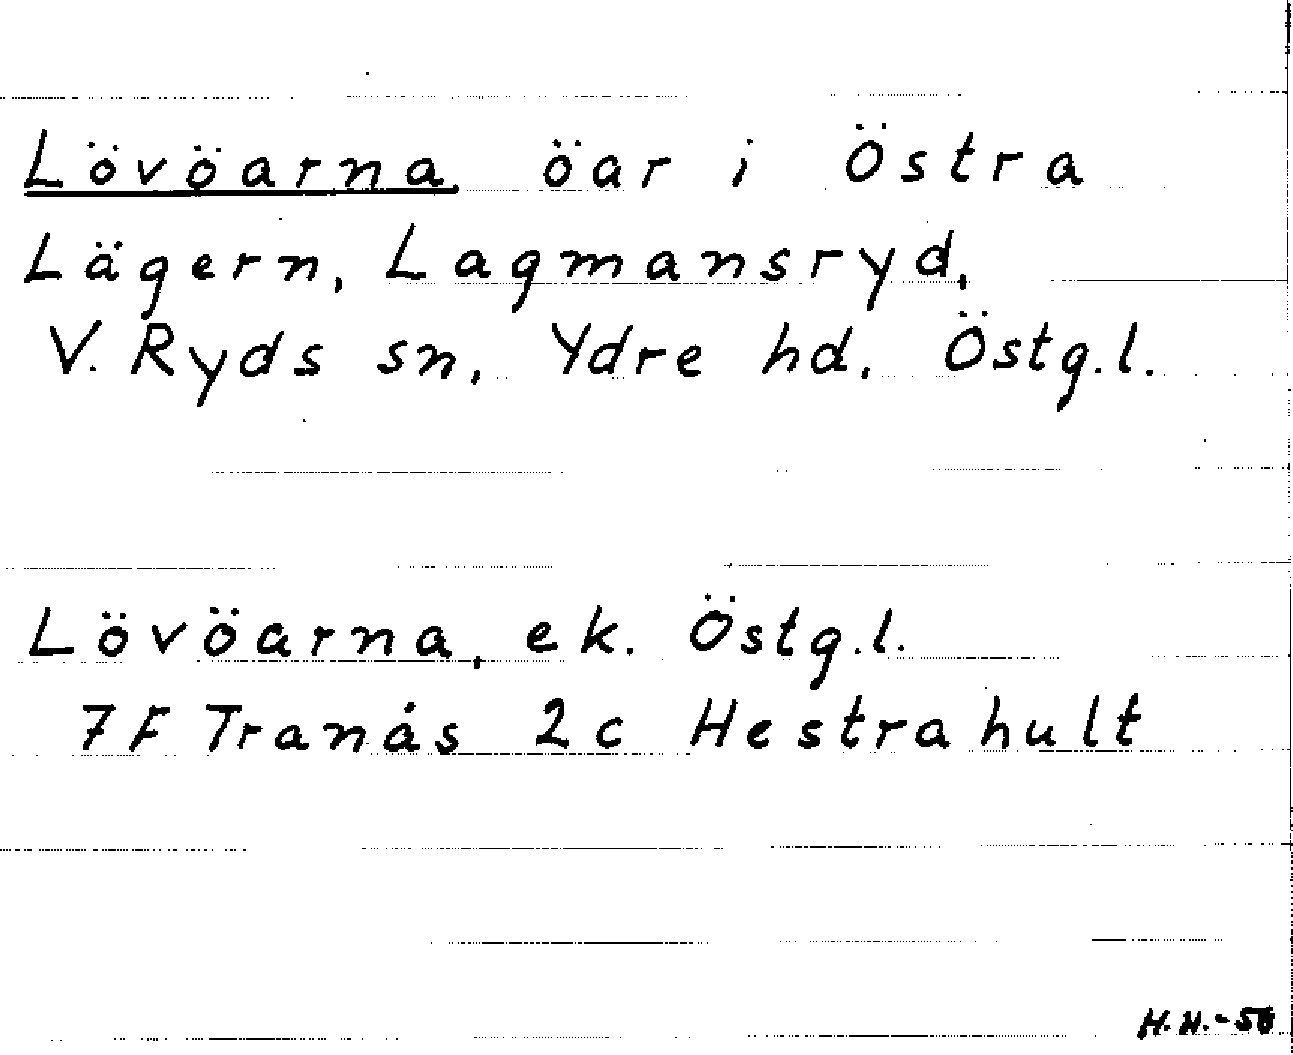 Lövöarna öar i Östra
Lägern, Lagmansryd,
V. Ryds sn, Ydre hd, Östg.l.
Lövöarna, ek. Östg.l.
7F Tranås 2c Hestrahult
H.H.-56